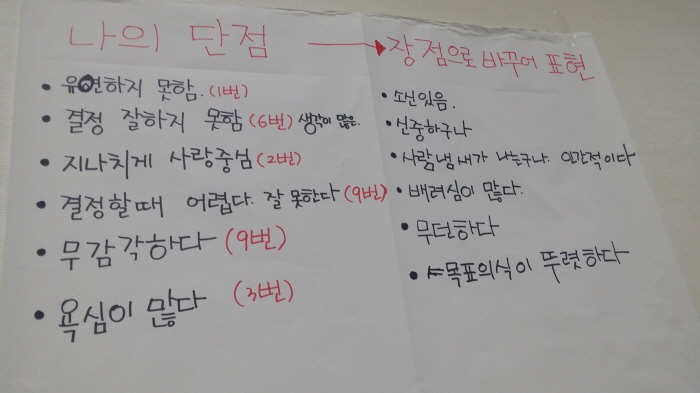 나의 단점 → 장점으로 바꾸어 표현
• 유연하지 못함. (1번)
• 결정 잘하지 못함 (6번) 생각이 많은.
• 지나치게 사랑중심 (2번)
• 결정할때 어렵다. 잘 못한다 (9번)
• 무감각하다 (9번)
• 욕심이 많다 (3번)
• 소신있음.
• 신중하구나
• 사람냄새가 나는구나. 인간적이다
• 배려심이 많다.
• 무던하다
• 목표의식이 뚜렷하다